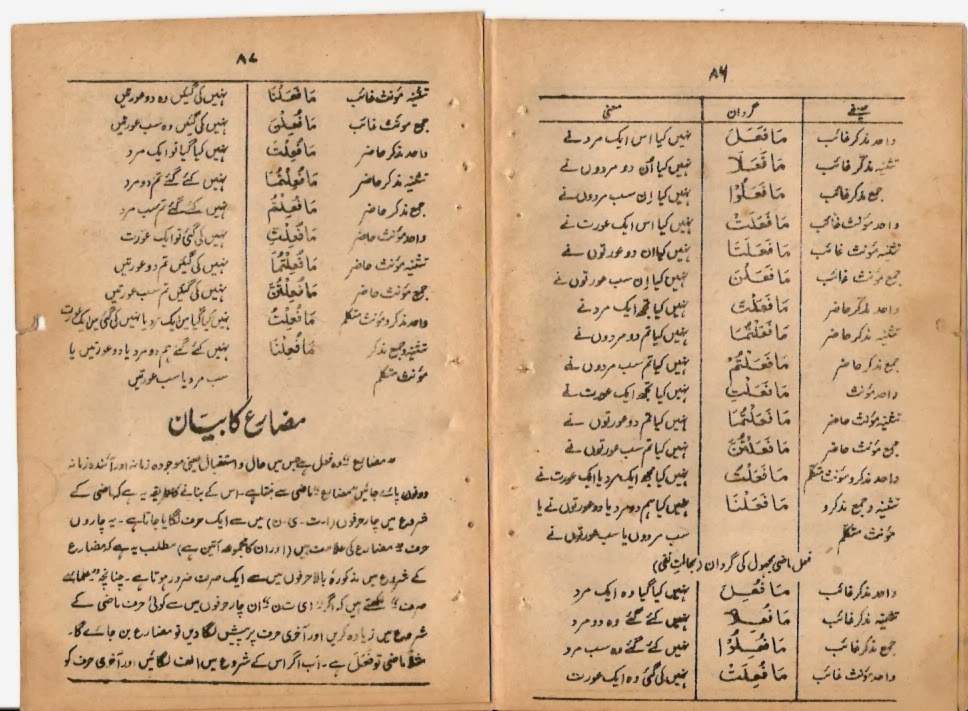 ۸۶
صیغے گردان معنی
واحد مذکر غائب مَا فَعَلَ نہیں کیا اس ایک مرد نے
تثنیہ مذکر غائب مَا فَعَلَا نہیں کیا اُن دو مردوں نے
جمع مذکر غائب مَا فَعَلُوْا نہیں کیا اِن سب مردوں نے
واحد مؤنث غائب مَا فَعَلَتْ نہیں کیا اس ایک عورت نے
تثنیہ مؤنث غائب مَا فَعَلَتَا نہیں کیا ان دو عورتوں نے
جمع مؤنث غائب مَا فَعَلْنَ نہیں کیا اِن سب عورتوں نے
واحد مذکر حاضر مَا فَعَلْتَ نہیں کیا تجھ ایک مرد نے
تثنیہ مذکر حاضر مَا فَعَلْتُمَا نہیں کیا تم دو مردوں نے
جمع مذکر حاضر مَا فَعَلْتُمْ نہیں کیا تم سب مردوں نے
واحد مؤنث مَا فَعَلْتِ نہیں کیا تجھ ایک عورت نے
تثنیہ مؤنث حاضر مَا فَعَلْتُمَا نہیں کیا تم دو عورتوں نے
جمع مؤنث حاضر مَا فَعَلْتُنَّ نہیں کیا تم سب عورتوں نے
واحد مذکر و مؤنث متکلم مَا فَعَلْتُ نہیں کیا مجھ ایک مرد یا ایک عورت نے
تثنیہ و جمع مذکر و مَا فَعَلْنَا نہیں کیا ہم دو مرد یا دو عورتوں نے یا
مؤنث متکلم سب مردوں یا سب عورتوں نے
فعل ماضی مجہول کی گردان (بحالت نفی)
واحد مذکر غائب مَا فُعِلَ نہیں کیا گیا وہ ایک مرد
تثنیہ مذکر غائب مَا فُعِلَا نہیں کئے گئے وہ دو مرد
جمع مذکر غائب مَا فُعِلُوْا نہیں کئے گئے وہ سب مرد
واحد مؤنث غائب مَا فُعِلَتْ نہیں کی گئی وہ ایک عورت
۸۷
تثنیہ مؤنث غائب مَا فُعِلَتَا نہیں کی گئیں وہ دو عورتیں
جمع مؤنث غائب مَا فُعِلْنَ نہیں کی گئیں وہ سب عورتیں
واحد مذکر حاضر مَا فُعِلْتَ نہیں کیا گیا تو ایک مرد
تثنیہ مذکر حاضر مَا فُعِلْتُمَا نہیں کئے گئے تم دو مرد
جمع مذکر حاضر مَا فُعِلْتُمْ نہیں کئے گئے تم سب مرد
واحد مؤنث حاضر مَا فُعِلْتِ نہیں کی گئی تو ایک عورت
تثنیہ مؤنث حاضر مَا فُعِلْتُمَا نہیں کی گئیں تم دو عورتیں
جمع مؤنث حاضر مَا فُعِلْتُنَّ نہیں کی گئیں تم سب عورتیں
واحد مذکر و مؤنث متکلم مَا فُعِلْتُ نہیں کیا گیا میں ایک مرد یا نہیں کی گئی میں ایک عورت
تثنیہ و جمع مذکر مَا فُعِلْنَا نہیں کئے گئے ہم دو مرد یا دو عورتیں یا
مؤنث متکلم سب مرد یا سب عورتیں
مضارع کا بیان
"مضارع" وہ فعل ہے جس میں حال و استقبال یعنی موجودہ زمانہ اور آئندہ زمانہ
دونوں پائے جائیں "مضارع" ماضی سے بنتا ہے۔ اس کے بنانے کا طریقہ یہ ہے کہ ماضی کے
شروع میں چار حرفوں (ا۔ت۔ی۔ن) میں سے ایک حرف لگایا جاتا ہے۔ یہ چاروں
حرف "مضارع" کی علامت ہیں (اور ان کا مجموعہ اَتَین ہے) مطلب یہ ہے کہ مضارع
کے شروع میں مذکورہ بالا حرفوں میں سے ایک حرف ضرور ہوتا ہے۔ چنانچہ "علمائے
صرف" لکھتے ہیں کہ اگر ا ی ت ن ان چار حرفوں میں سے کوئی حرف ماضی کے
شروع میں زیادہ کریں اور آخری حرف پر پیش لگا دیں تو مضارع بن جائے گا۔
مثلاً ماضی تو فَعَلَ ہے۔ اب اگر اس کے شروع میں الف لگائیں اور آخری حرف کو